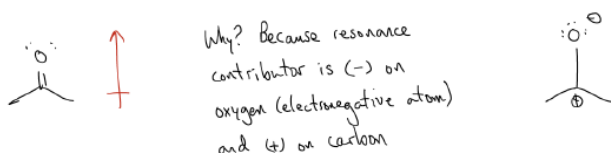 Why? Because resonance
contributor is (-) on
oxygen (electronegative atom)
and (+) on carbon
:O:
:O: ⊖
⊕